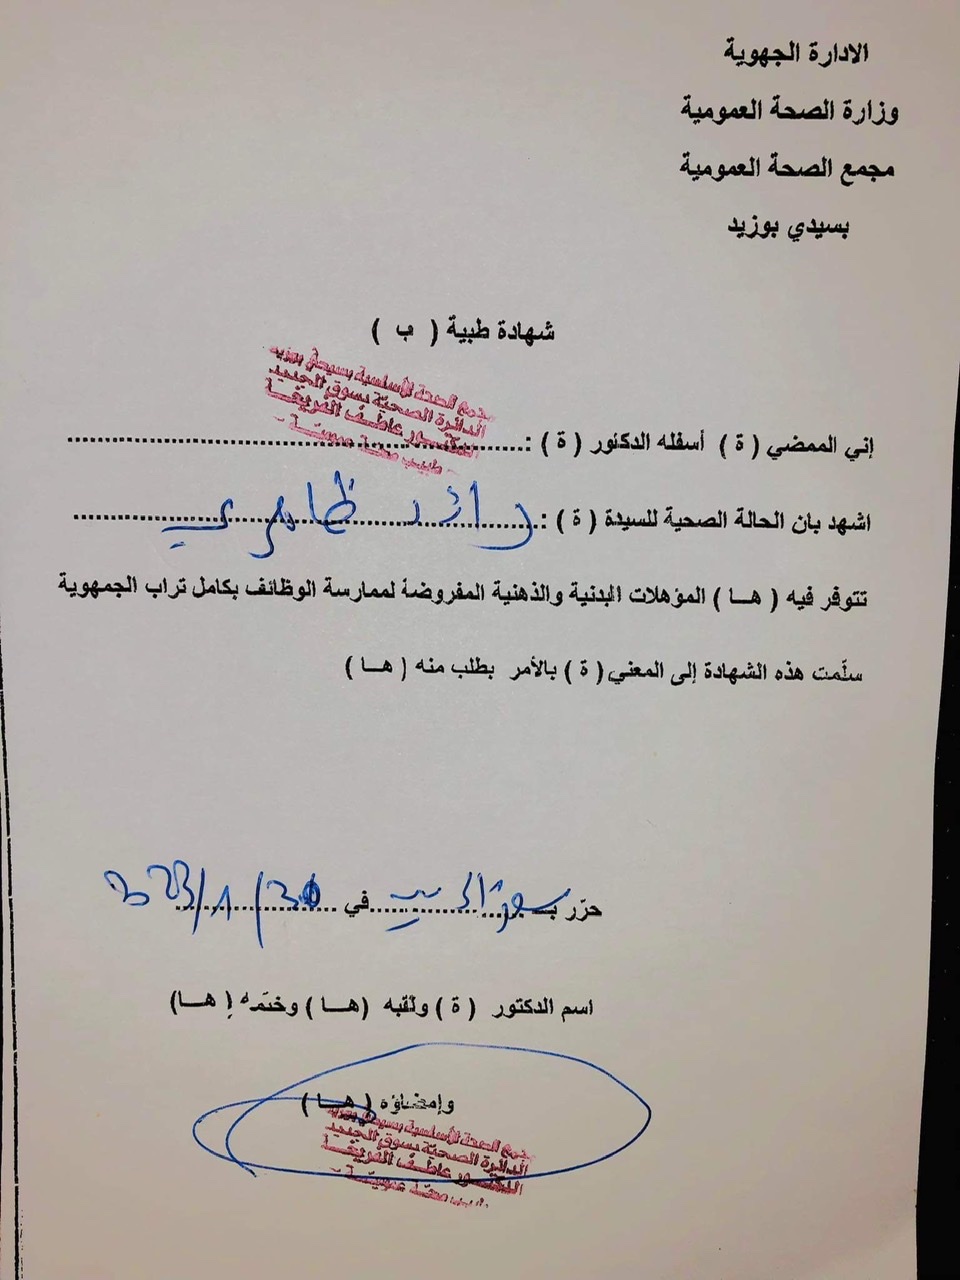 الادارة الجهوية
وزارة الصحة العمومية
مجمع الصحة العمومية
بسيدي بوزيد
شهادة طبية ( ب )
مجمع الصحة الأساسية بسيدي بوزيد
الدائرة الصحية بسوق الجديد
الدكتور عاطف الفريضي
طبيب صحة عمومية
إني الممضي ( ة ) أسفله الدكتور ( ة ) :
اشهد بان الحالة الصحية للسيدة ( ة ) : رائد ظاهري
تتوفر فيه ( هـا ) المؤهلات البدنية والذهنية المفروضة لممارسة الوظائف بكامل تراب الجمهوية
سلّمت هذه الشهادة إلى المعني ( ة ) بالأمر بطلب منه ( هـا )
حرّر بـ في
اسم الدكتور ( ة ) ولقبه (هـا ) وختمه ( هـا)
وإمضاؤه ( هـا )
مجمع الصحة الأساسية بسيدي بوزيد
الدائرة الصحية بسوق الجديد
الدكتور عاطف الفريضي
طبيب صحة عمومية